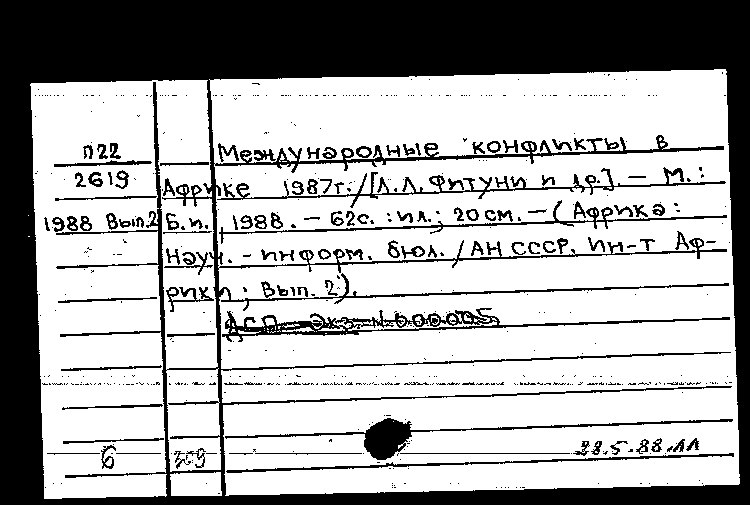 П22 Международные конфликты в
2619 Африке 1987г. /[Л.Л. Фитуни и др.]. – М.:
1988 Вып.2 Б.и., 1988. – 62с. : ил.; 20 см. – (Африка:
Науч. - информ. бюл. / АН СССР. Ин-т Аф-
рики; Вып. 2).
ДСП Экз. N 000005
6 309 28.5.88.ЛЛ